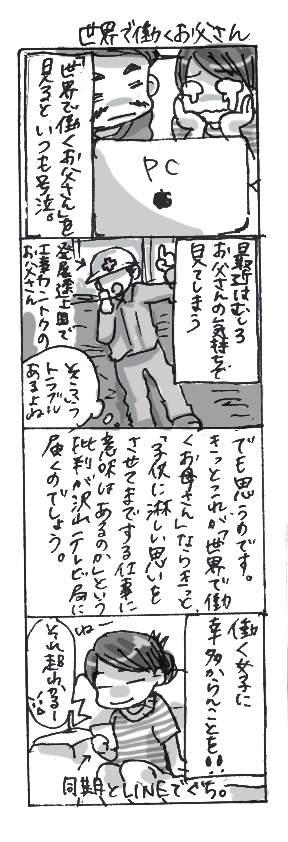 世界で働くお父さん
「世界で働くお父さん」を
見るといつも号泣。
PC
最近はむしろ
お父さんの気持ちで
見てしまう
発展途上国で
工事カントクの
お父さん
そういう
トラブル
あるよね
でも思うのです。
きっとこれが「世界で働
くお母さん」ならきっと
「子供に淋しい思いを
させてまでする仕事に
意味はあるのか」という
批判が沢山テレビ局に
届くのでしょう。
働く女子に
幸多からんことを!!
ねー
それ超わかるー!!
同期とLINEでぐち。